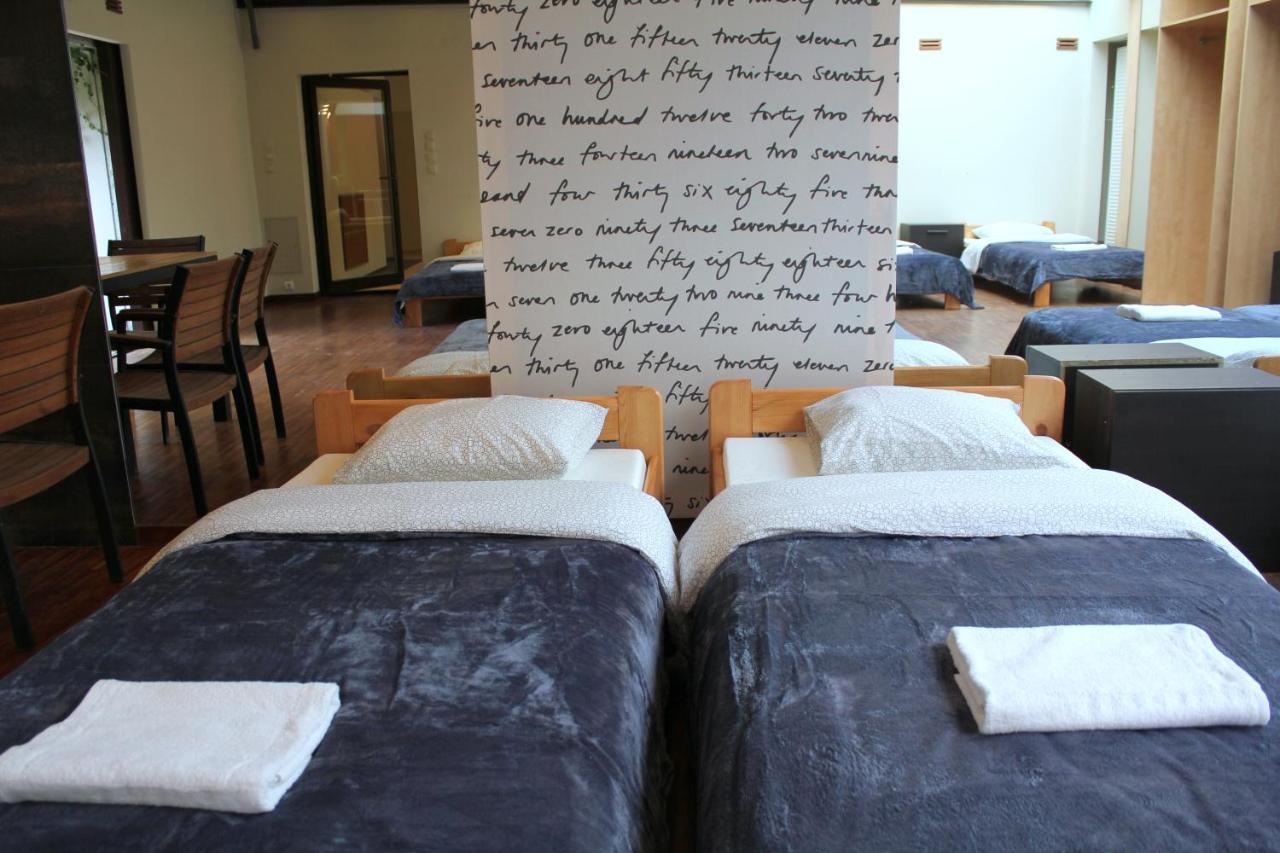 forty zero eighteen five ninety nine
thirty one fifteen twenty eleven zer
seventeen eight fifty thirteen seventy
five one hundred twelve forty two twen
ty three fourteen nineteen two seven nine
sand four thirty six eighty five tho
seven zero ninety three seventeen thirteen
twelve three fifty eighty eighteen si
n seven one twenty two nine three four h
forty zero eighteen five ninety nine t
en thirty one fifteen twenty eleven zero
fifty
twel
nine
ty six